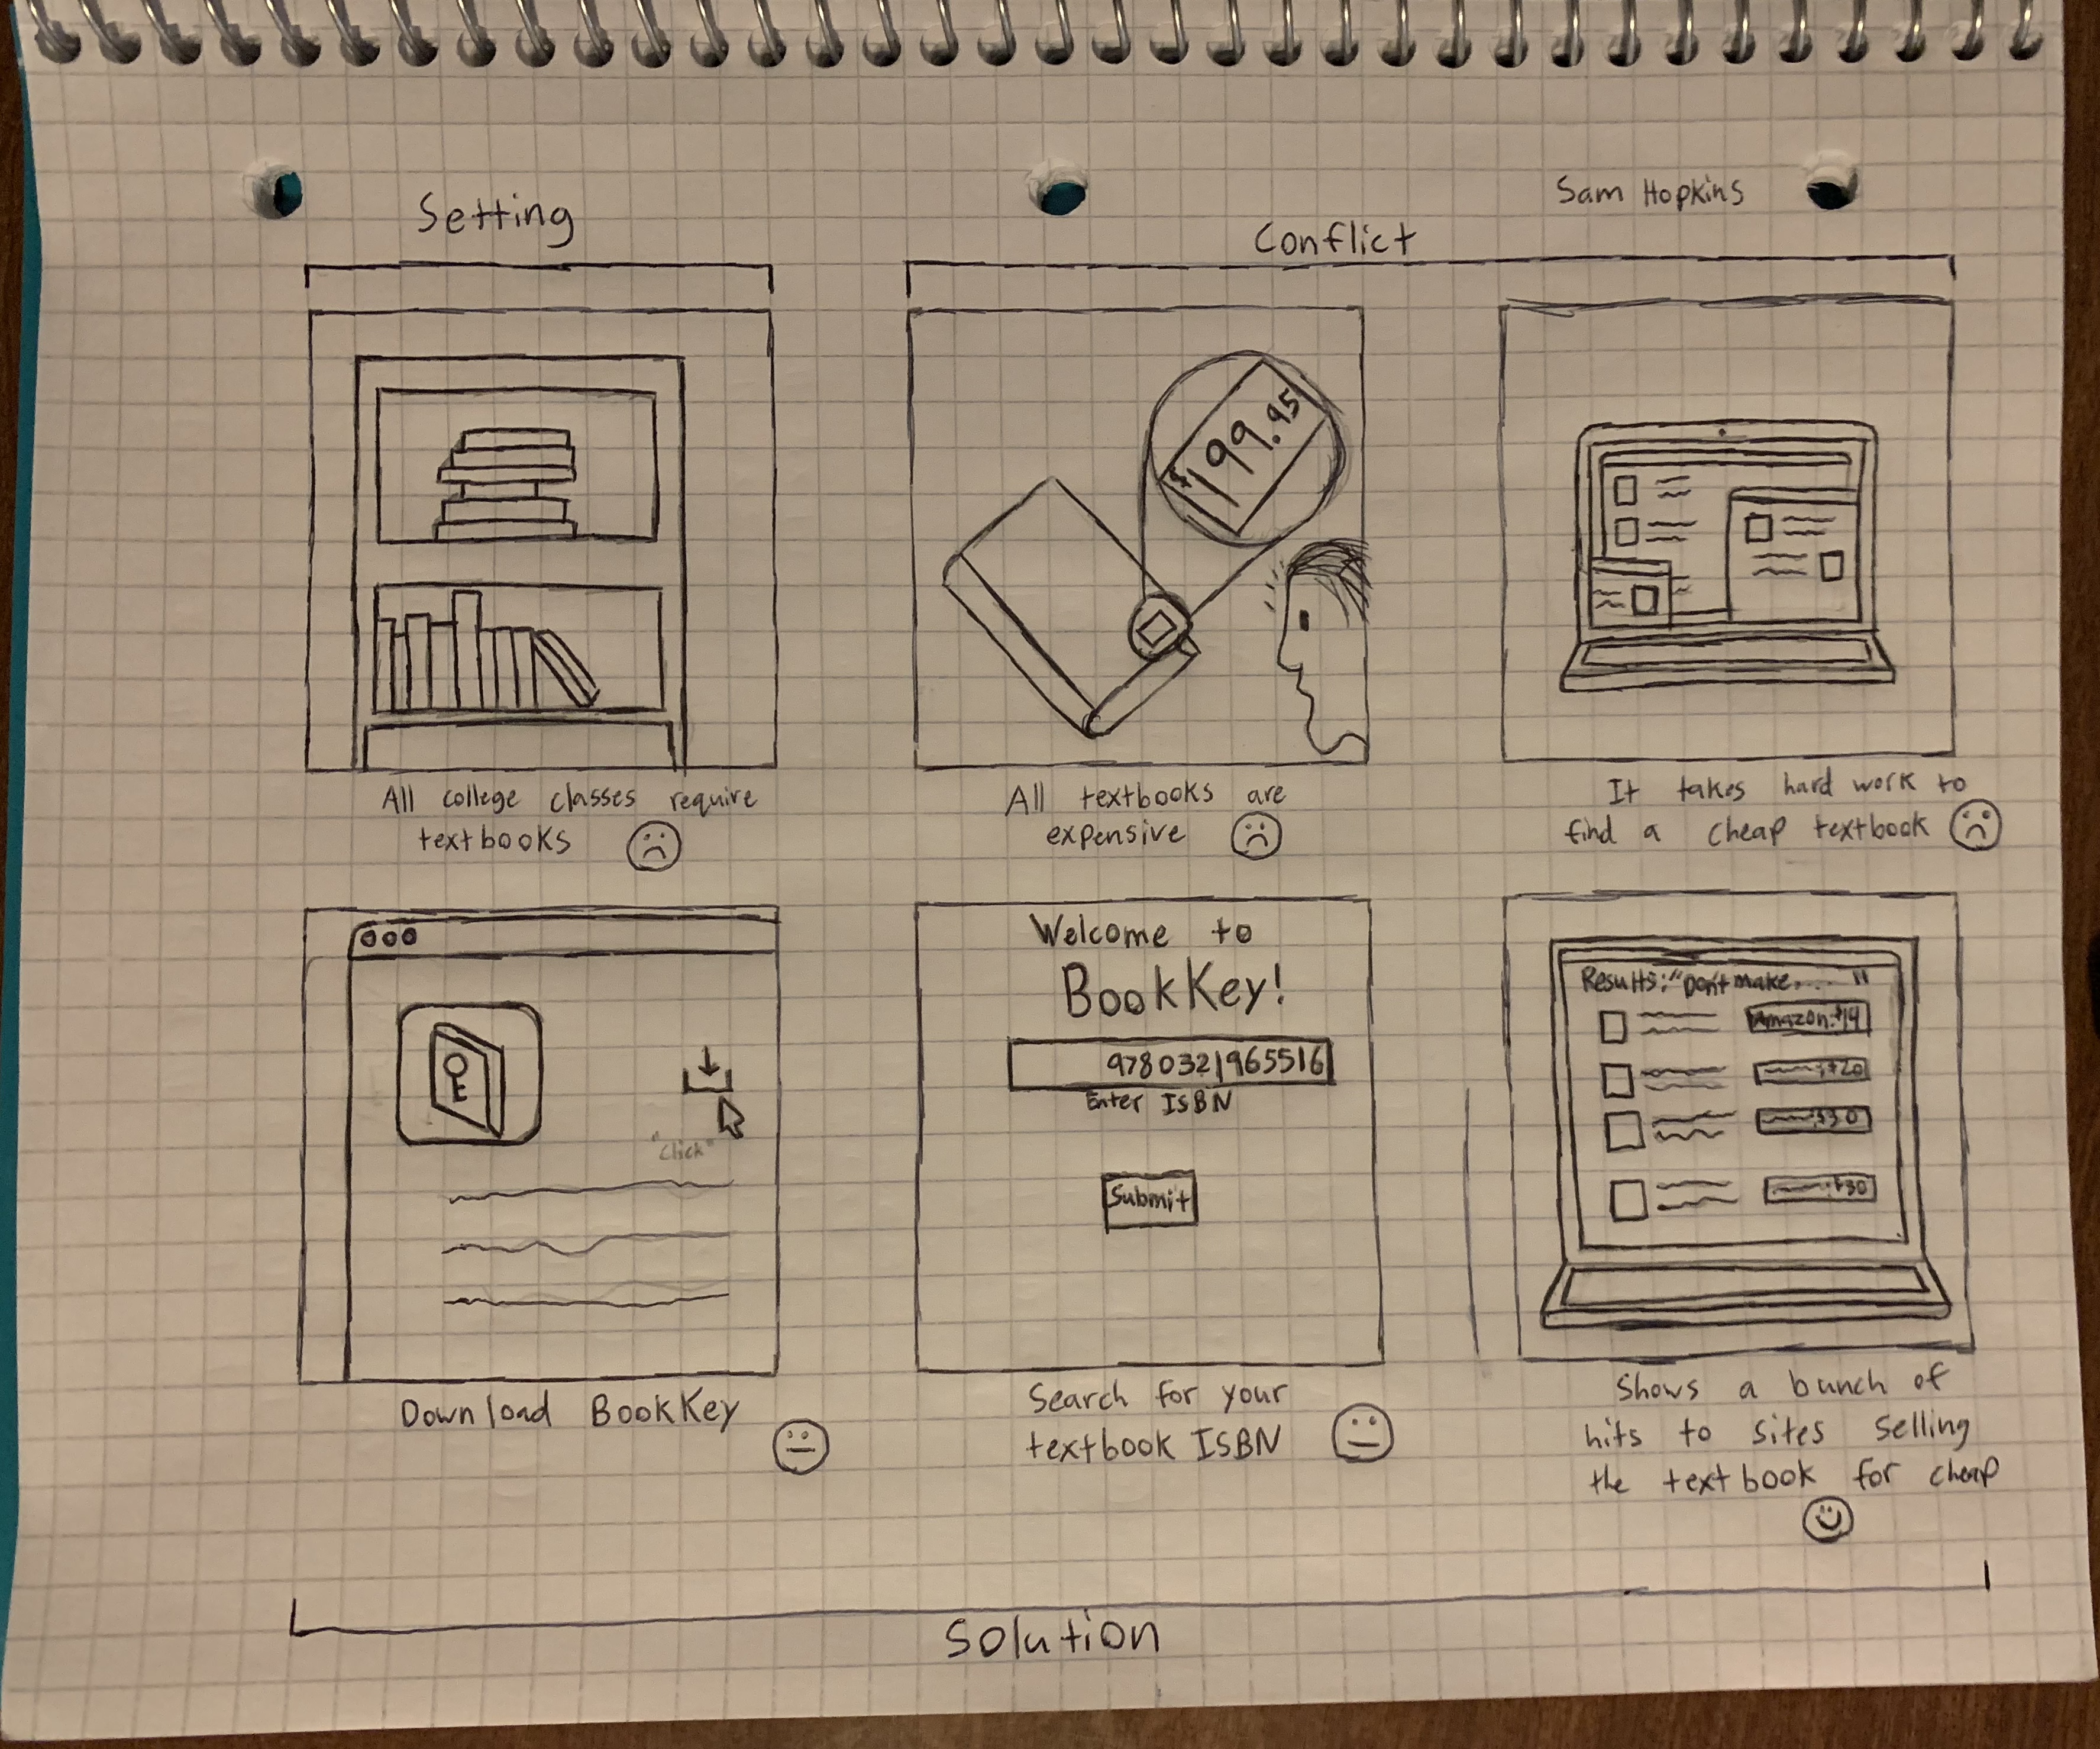 Sam Hopkins
Setting
Conflict
$199.95
All college classes require
textbooks
All textbooks are
expensive
It takes hard work to
find a cheap textbook
"Click"
Download BookKey
Welcome to
BookKey!
9780321965516
Enter ISBN
Submit
Search for your
textbook ISBN
Results: "Don't make.... "
Amazon: $14
$20
$30
$30
Shows a bunch of
hits to sites selling
the textbook for cheap
Solution